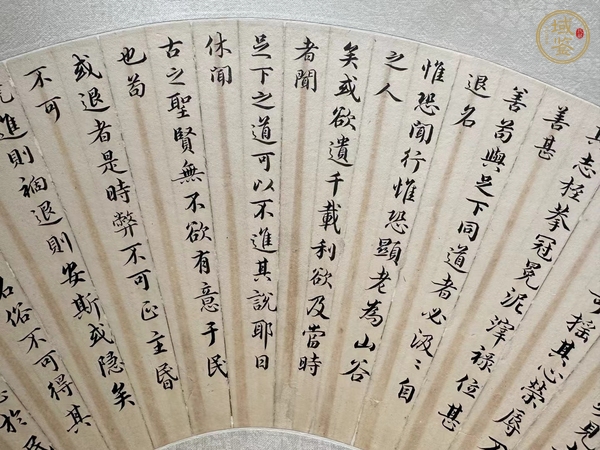 見
可搖其心榮辱
其志桎拳冠冕泥滓祿位甚
善甚
善苟與足下同道者必汲〻自
退名
惟恐聞行惟恐顯老為山谷
之人
矣或欲遺千載利欲及當時
者聞
足下之道可以不進其說耶曰
休聞
古之聖賢無不欲有意于民
也苟
或退者是時弊不可正主昏
不可
進則禍退則安斯或隱矣
名俗不可得其
心於民
域鉴